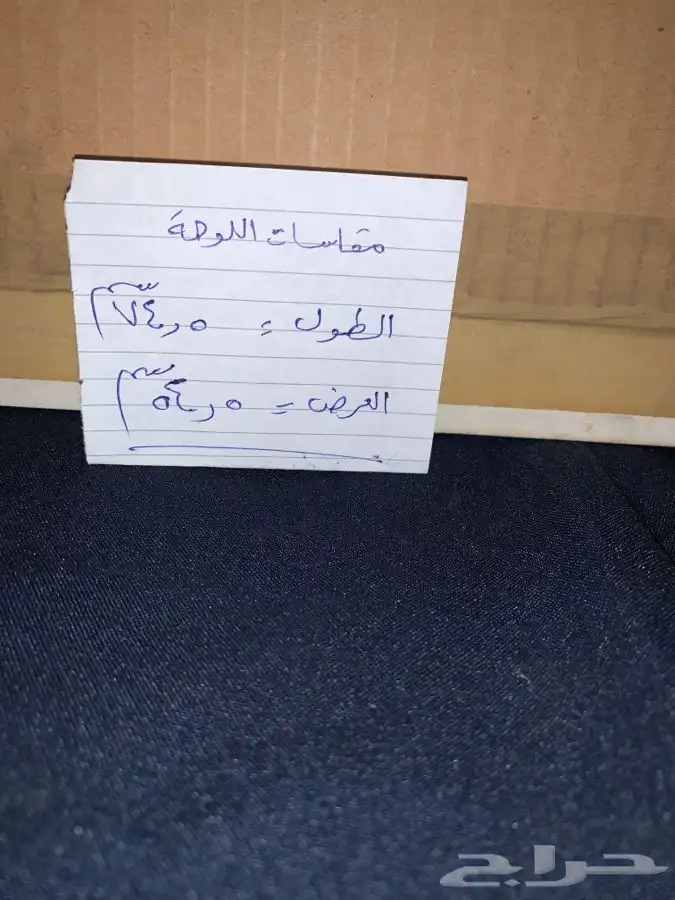 مقاسات اللوحة
الطول = ٧٤,٥ سم
العرض = ٥٤,٥ سم
حراج